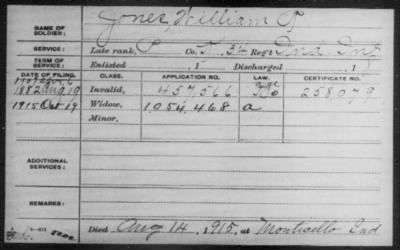 NAME OF SOLDIER: Jones, William P.
SERVICE: Late rank, P Co. 31 Reg't Ind. Inf.
TERM OF SERVICE: Enlisted , 1 Discharged , 1
DATE OF FILING. CLASS. APPLICATION NO. LAW. CERTIFICATE NO.
1882 Aug 19 Invalid, 457,566 258,079
1915 Oct 19 Widow, 1,054,468 a
Minor,
ADDITIONAL SERVICES:
REMARKS:
Died Aug 14, 1915, at Monticello Ind